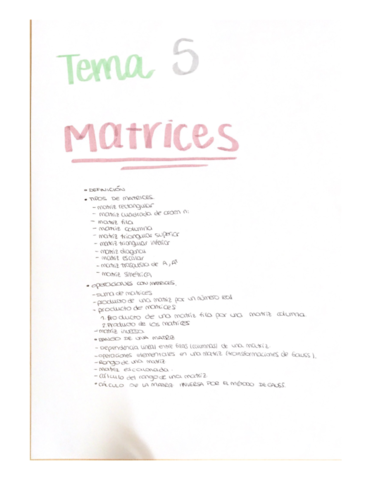 Tema 5
Matrices
• DEFINICIÓN
• TIPOS DE MATRICES
- matriz rectangular
- matriz cuadrada de orden n.
- matriz fila
- matriz columna
- matriz triangular superior
- matriz triangular inferior
- matriz diagonal
- matriz escalar
- matriz traspuesta de A,
- matriz simétrica
• OPERACIONES CON MATRICES.
- suma de matrices
- producto de una matriz por un número real
- producto de matrices
1. Producto de una matriz fila por una matriz columna
2. Producto de dos matrices
- matriz inversa
• RANGO DE UNA MATRIZ
- dependencia lineal entre filas (columnas) de una matriz.
- operaciones elementales en una matriz (transformaciones de Gauss).
- Rango de una matriz
- matriz escalonada
- cálculo del rango de una matriz.
• CÁLCULO DE LA MATRIZ INVERSA POR EL MÉTODO DE GAUSS